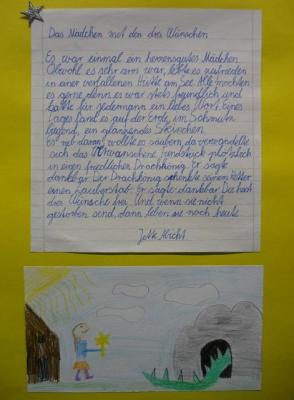 Das Mädchen mit den drei Wünschen
Es war einmal ein herzensgutes Mädchen.
Obwohl es sehr arm war, lebte es zufrieden
in einer verfallenen Hütte am See. Alle mochten
es gerne, denn es war stets freundlich und
hatte für jedermann ein liebes Wort. Eines
Tages fand es auf der Erde, im Schmutz
liegend, ein glänzendes Sternchen.
Es rieb daran, wollte es säubern, da verwandelte
sich das verwunschene Fundstück plötzlich
in einen friedlichen Drachkönig. Er sagte
dankbar Der Drachkönig schenkte seinem Retter
einen Zauberstab. Er sagte dankbar Du hast
drei Wünsche frei. Und wenn sie nicht
gestorben send, dann leben sie noch heute.